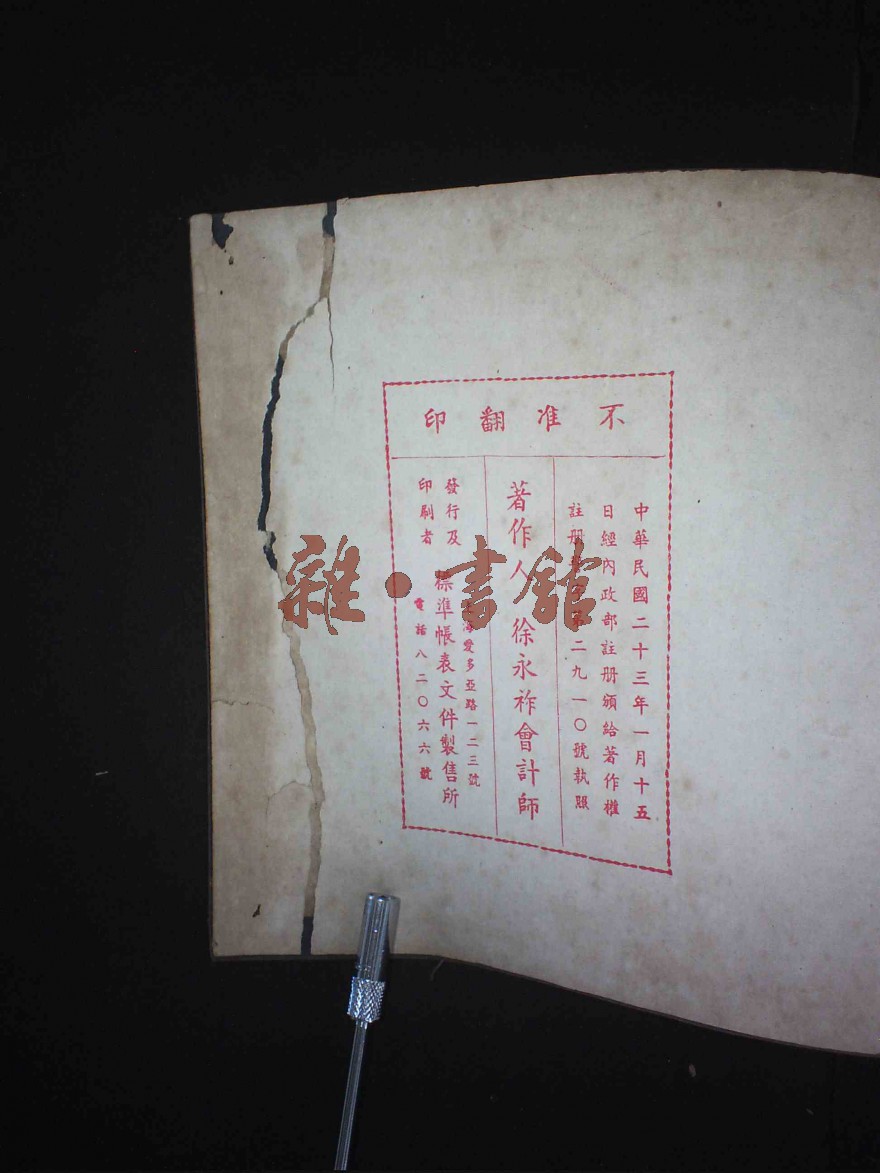 不准翻印
中華民國二十三年一月十五
日經內政部註册頒給著作權
註册 第二九一〇號執照
著作人 徐永祚會計師
發行及
印刷者
上海愛多亞路一二三號
標準帳表文件製售所
電話八二〇六六號
雜·書館